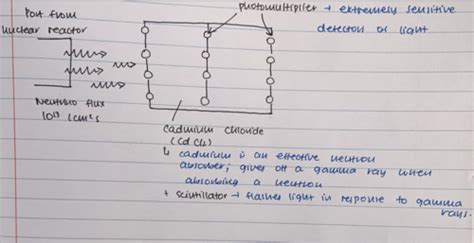 Port from
nuclear reactor
photomultiplier → extremely sensitive
detector of light
Neutrino flux
10¹³ /cm²s
cadmium chloride
(CdCl₂)
↳ cadmium is an effective neutron
absorber; gives off a gamma ray when
absorbing a neutron
+ scintillator → flashes light in response to gamma
rays.